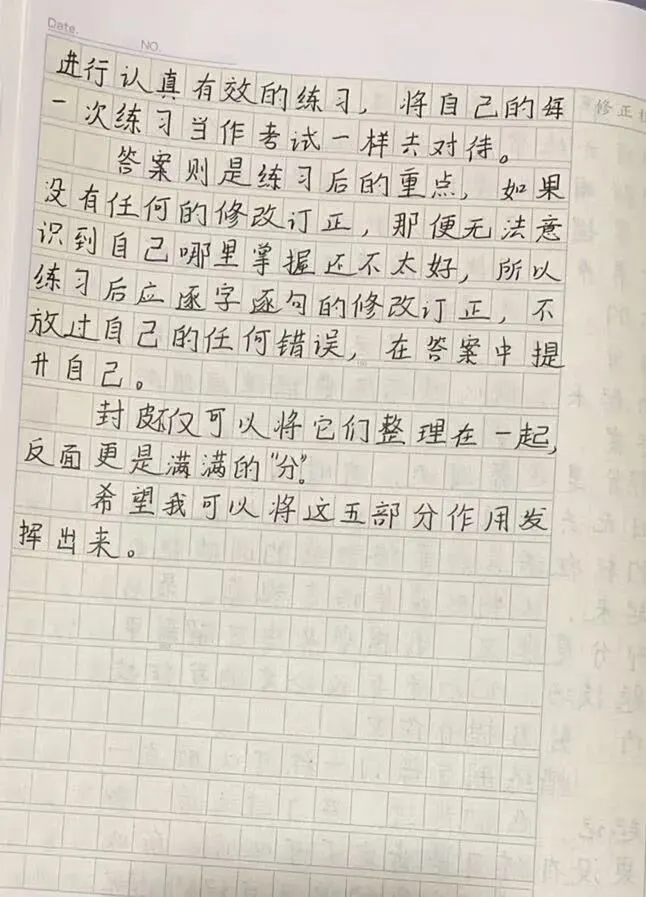 Date.
NO.
进行认真有效的练习，将自己的每
一次练习当作考试一样去对待。
答案则是练习后的重点，如果
没有任何的修改订正，那便无法意
识到自己哪里掌握还不太好，所以
练习后应逐字逐句的修改订正，不
放过自己的任何错误，在答案中提
升自己。
封皮不仅可以将它们整理在一起，
反面更是满满的“分”。
希望我可以将这五部分作用发
挥出来。
修正